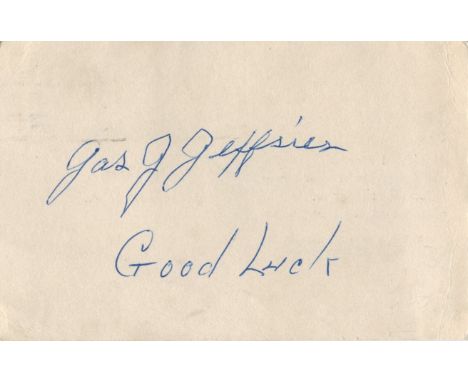 Jas J Jeffries
Good Luck